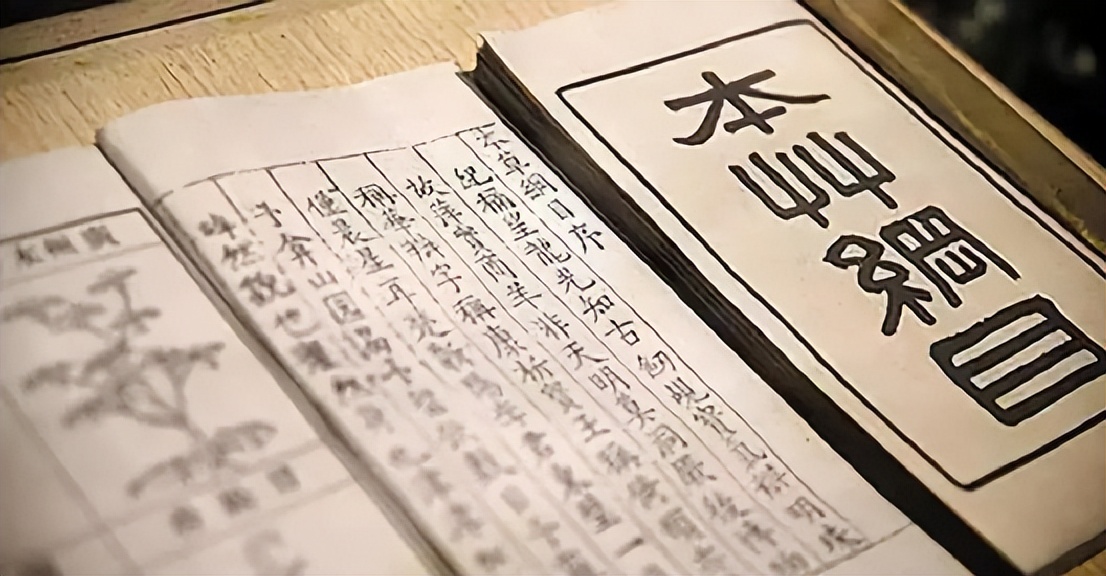 本草綱目
本草綱目序
紀稱望龍光知古劒覘寶氣辨明珠
故萍實商羊非天明莫洞厥後博
稱華辯字稱康析寶玉稱倚頓亦
僅晨星耳楚蘄陽李君東璧一
予弇山園謁予留飲數十
睟然貌也癯然身也